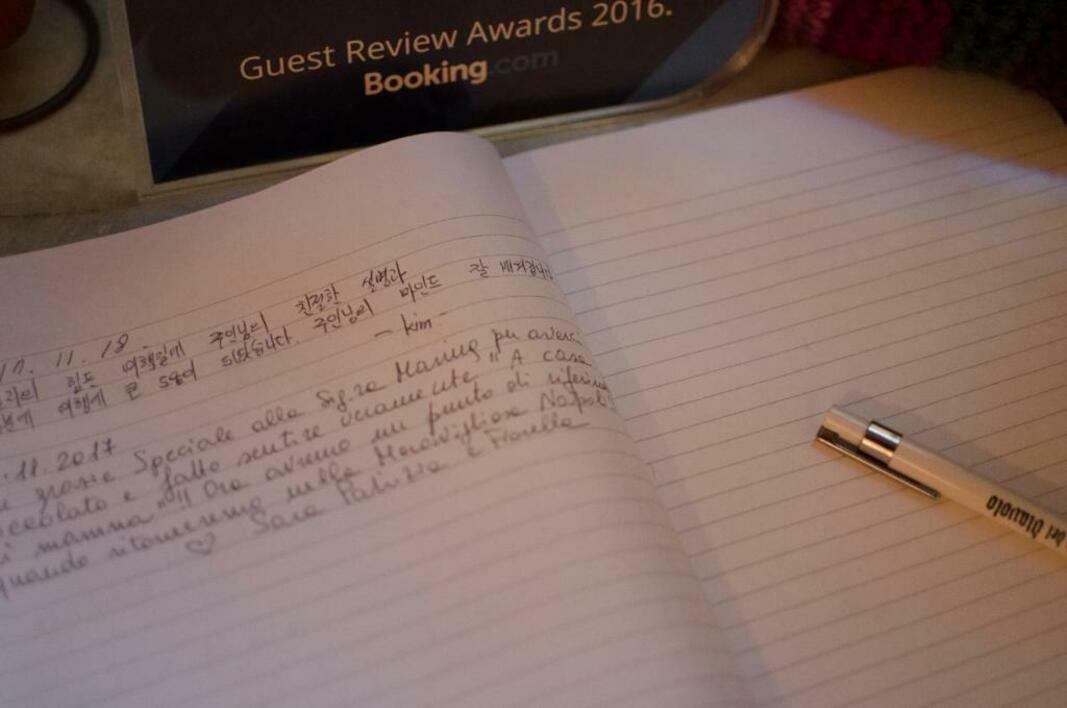 Guest Review Awards 2016.
Booking.com
17. 11. 18.
우리의 힘든 여행길에 주인님의 친절한 설명과
여행에 큰 도움이 되었습니다. 주인님의 마인드 잘
- kim -
.11.2017
grazie Speciale alla Sig.ra Marina per averci
e fatto sentire veramente "A casa
di mamma"!! Ora avremo un punto di
quando ritorneremo nella Meravigliosa Napoli
♡ Sara Patrizia e Fiorella
del Diavolo